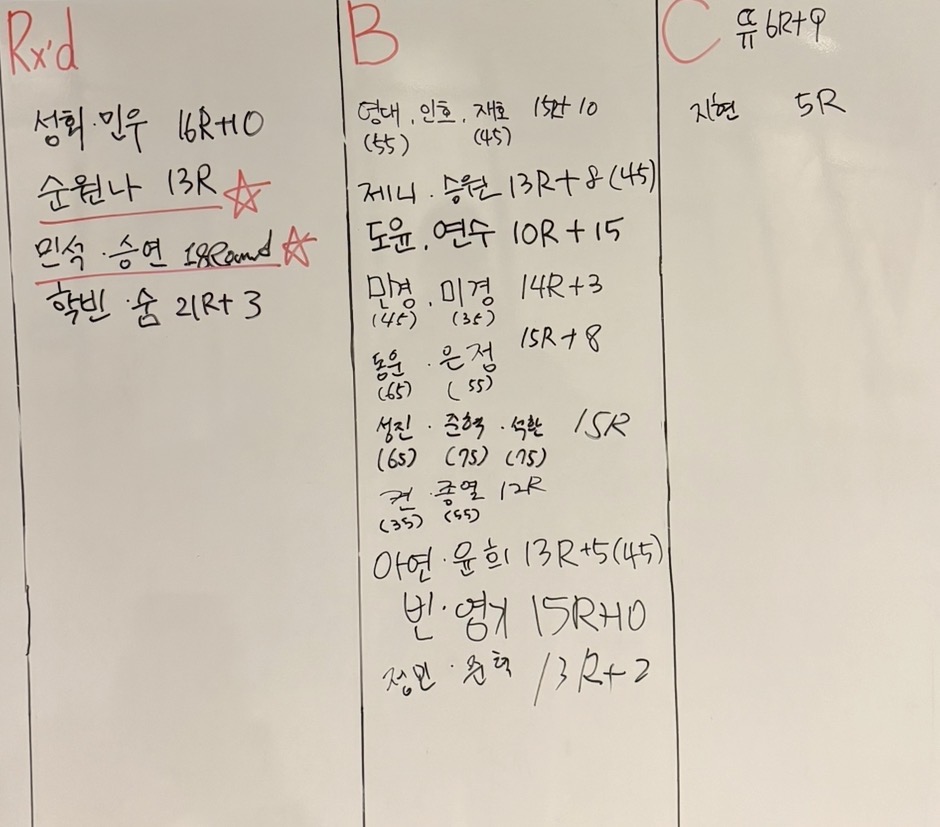 Rx'd
성회·민우 16R+10
순원나 13R
민석·승연 18Round
학빈·숨 21R+3
B
영대, 인호, 재호 15R+10
(55) (45)
제니·승원 13R+8(45)
도윤, 연수 10R+15
민경, 미경 14R+3
(45) (35)
동운·은정 15R+8
(65) (55)
성진·준혁·석환 15R
(65) (75) (75)
켠·종열 12R
(35) (55)
아연·윤희 13R+5(45)
빈·영기 15R+10
정민·준혁 13R+2
C
뜌 6R+9
지현 5R